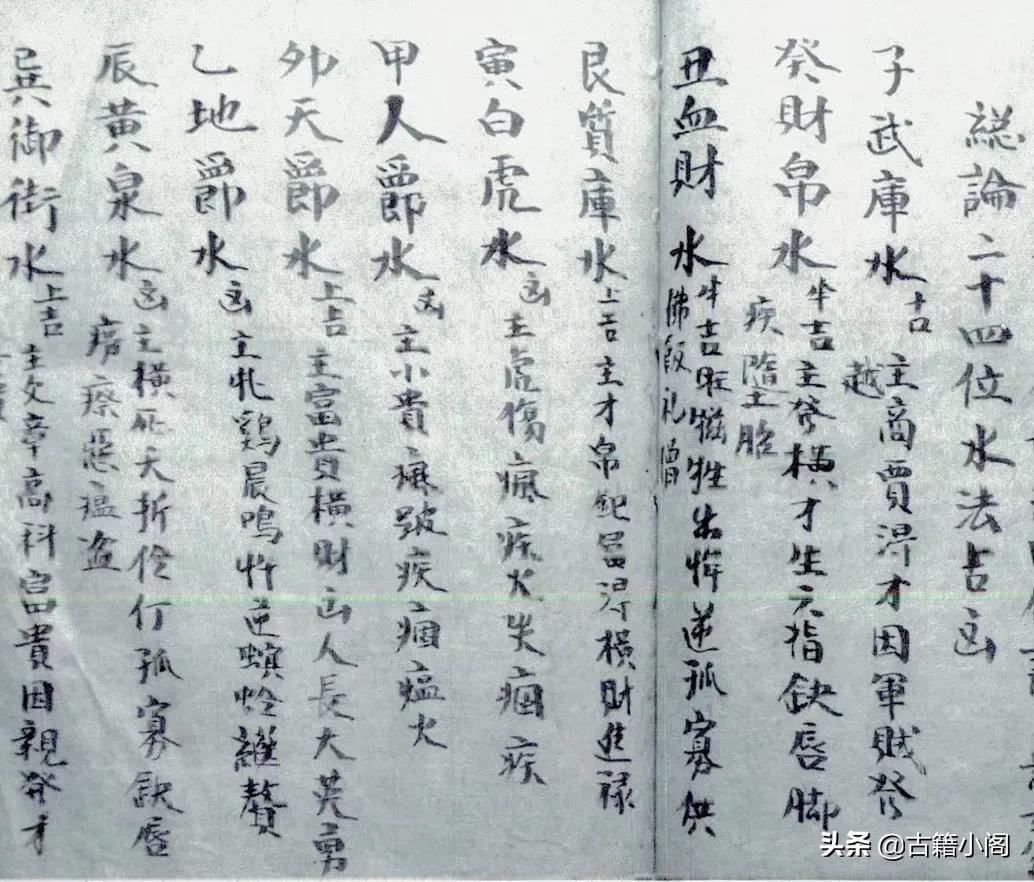 総論二十四位水法吉凶
子武庫水 吉 主商賈淂才因軍賊發
越
癸財帛水 半吉 主發橫才生六指缺唇脚
疾墮土胎
丑血財水 半吉旺犠牲生忤逆孤寡供
佛飯礼僧
艮質庫水 上吉主才帛鈀畐淂橫財進祿
寅白虎水 凶主虎傷瘋疾火失痼疾
甲人爵水 凶主小貴瘫跛疾痼瘟火
夘天爵水 上吉主富貴横財出人長大英勇
乙地爵水 凶主牝鷄晨鳴忤逆螟蛉離贅
辰黄泉水 凶主横死夭折伶仃孤寡缺唇
癆瘵惡瘟盗
巽御街水 上吉主文章高科富貴因親發才
头条 @古籍小阁